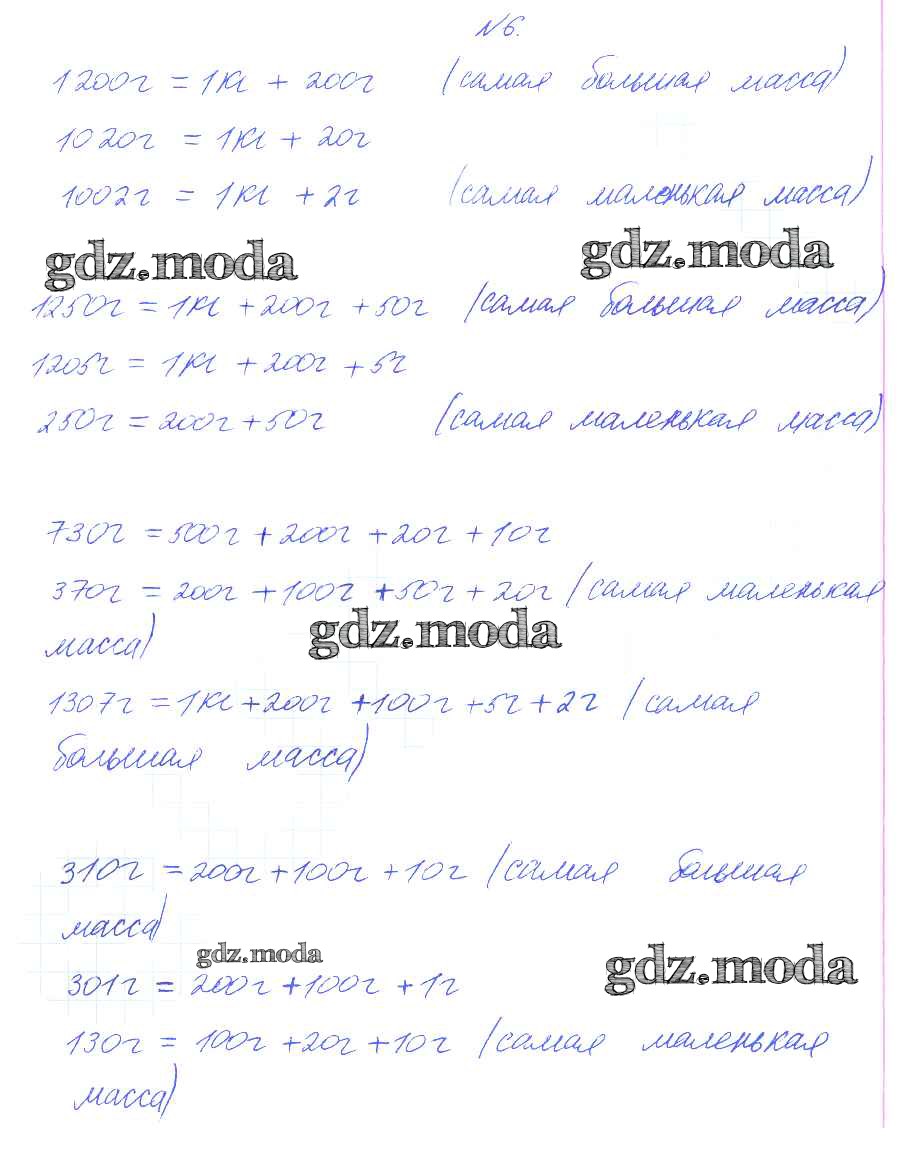 №6.
1200г = 1кг + 200г (самая большая масса)
1020г = 1кг + 20г
1002г = 1кг + 2г (самая маленькая масса)
gdz.moda gdz.moda
1250г = 1кг + 200г + 50г (самая большая масса)
1205г = 1кг + 200г + 5г
250г = 200г + 50г (самая маленькая масса)
730г = 500г + 200г + 20г + 10г
370г = 200г + 100г + 50г + 20г (самая маленькая
масса)
gdz.moda
1307г = 1кг + 200г + 100г + 5г + 2г (самая
большая масса)
310г = 200г + 100г + 10г (самая большая
масса)
gdz.moda gdz.moda
301г = 200г + 100г + 1г
130г = 100г + 20г + 10г (самая маленькая
масса)